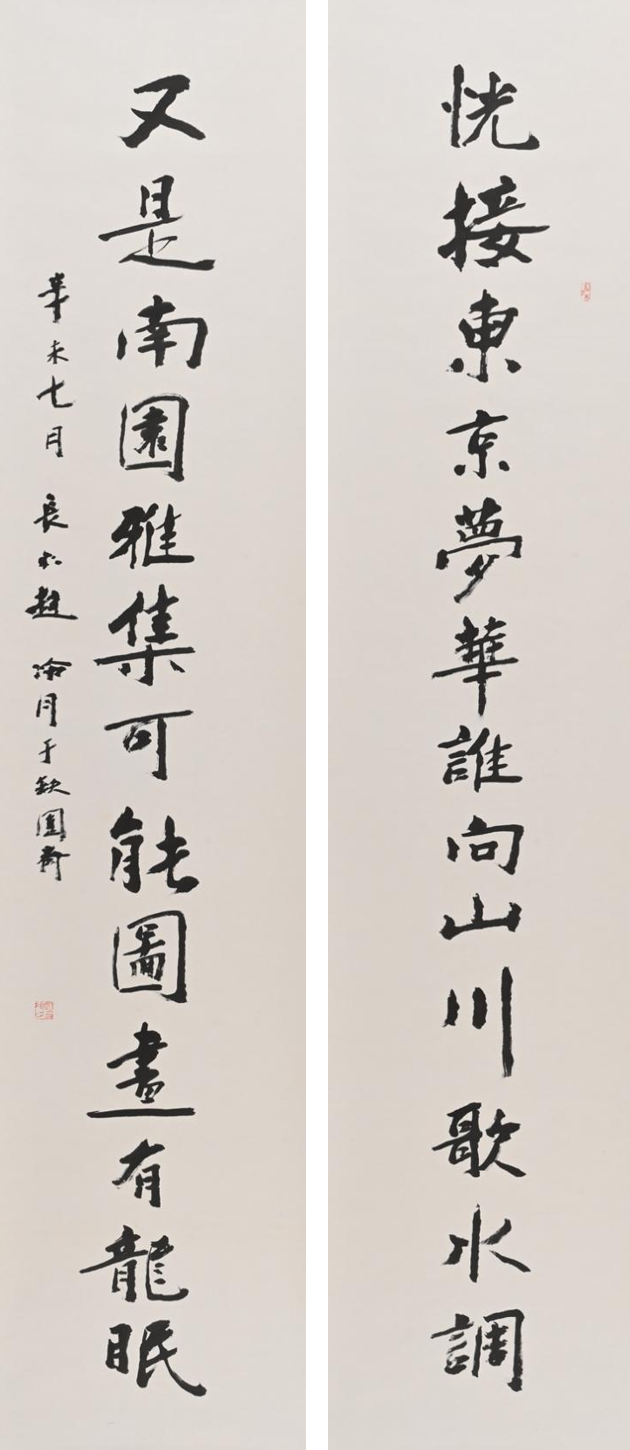 恍接東京夢華誰向山川歌水調
又是南園雅集可能圖畫有龍眠
辛未七月 長水趙冷月于缺圓齋